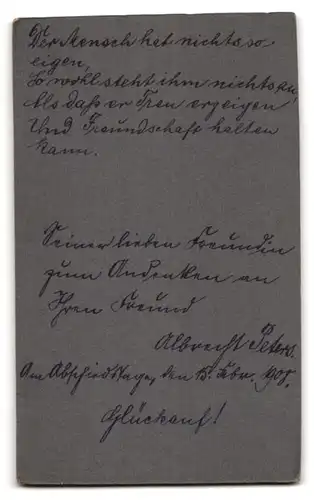 Der Mensch hat nichts so
eigen,
So wohl steht ihm nichts an,
Als daß er Treu erzeigen
Und Freundschaft halten
kann.
Seiner lieben Freundin
zum Andenken an
Ihren Freund
Albrecht Peters.
Am Abschiedstage, den 15. Febr. 1908.
Glückauf!